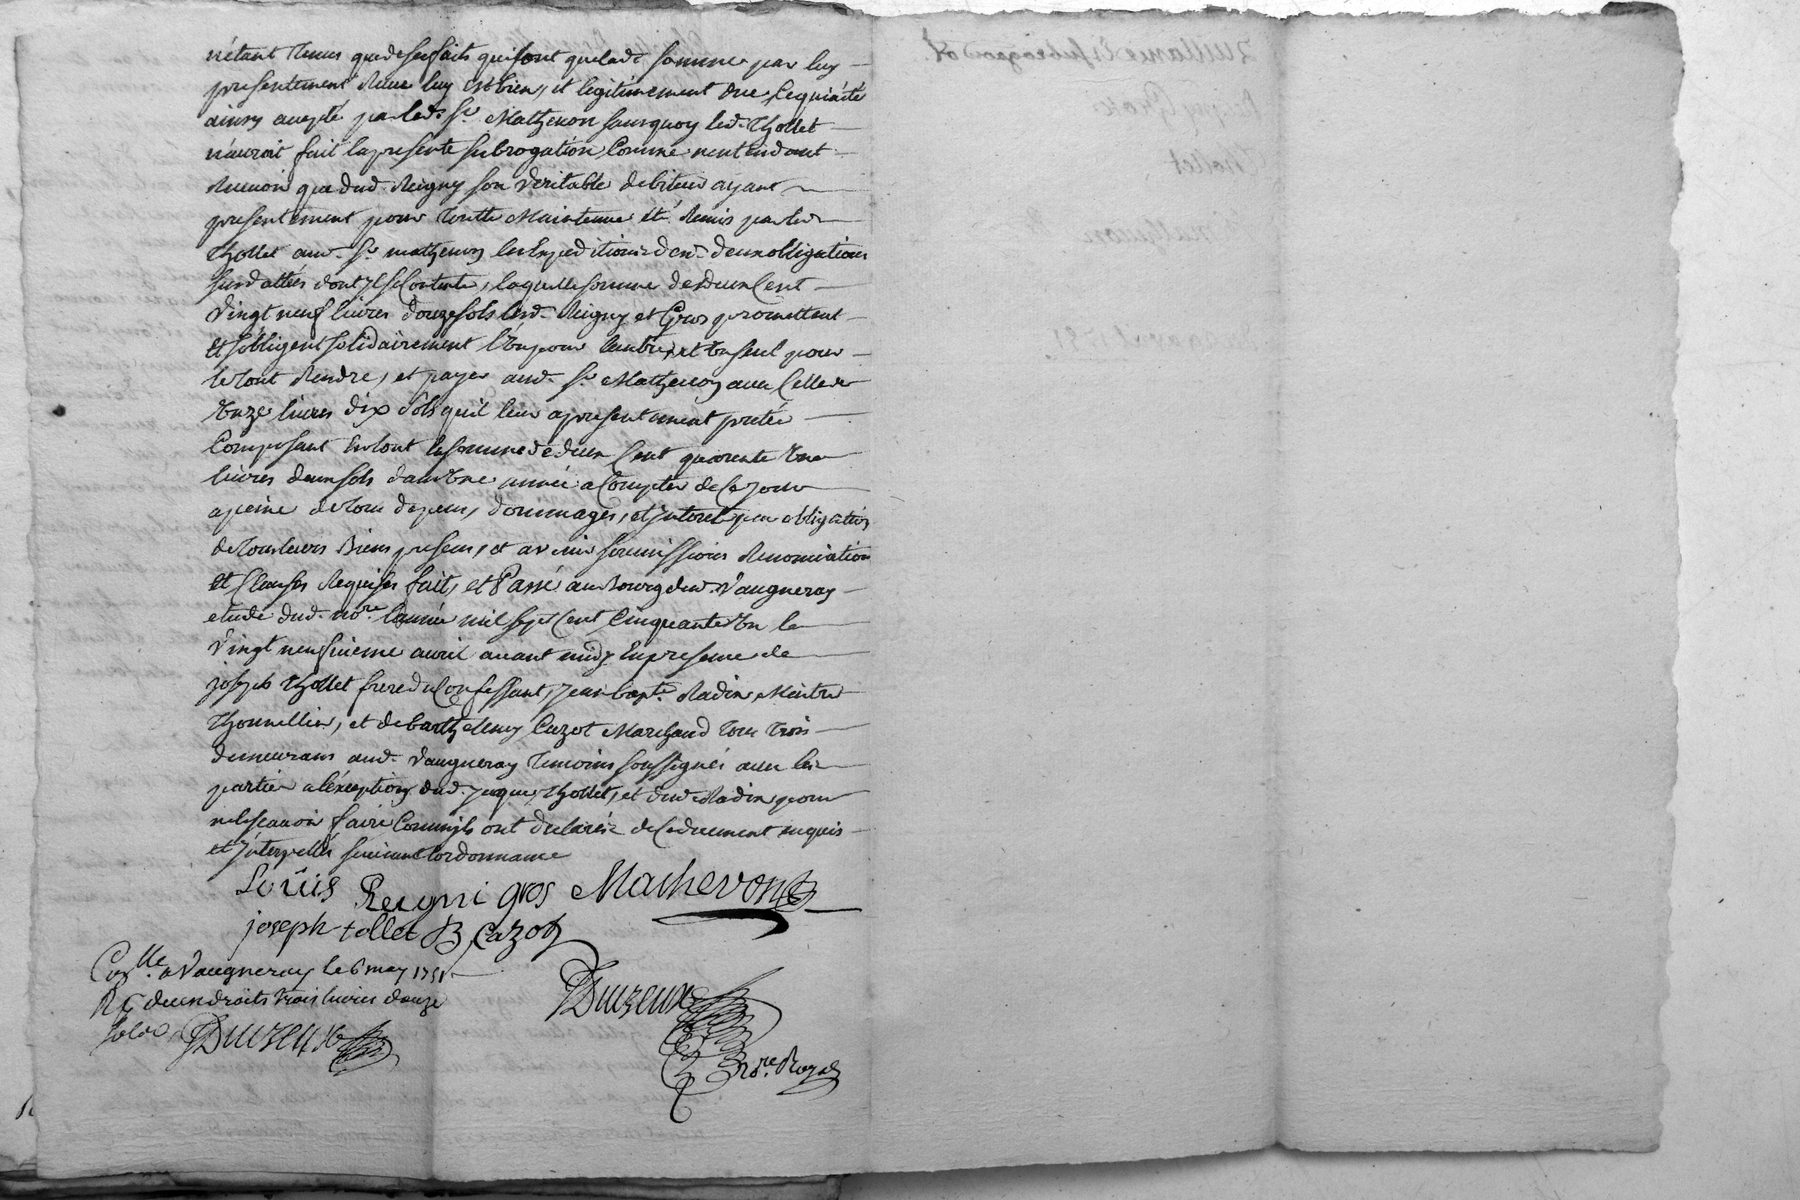 n'étant tenus que de ses faits qui sont que lad.e somme par luy
presentement Reçue luy est bien, et legitimement due, ce qui a été
ainsy accepté par led. Sr. Mathevon sans quoy led. Thollet
n'auroit fait la presente subrogation Comme n'entendant
Recevoir que dud. Reigny son veritable debiteur ayant
presentement pour toutte Maintenue été Remis par led.
Thollet aud. Sr. mathevon les Expeditions desd. deux obligations
susdattées dont il se Contente, laquelle somme de deux Cent
vingt neuf livres douze sols lesd. Reigny et Gros promettent
et s'obligent solidairement l'un pour l'autre, et un seul pour
le tout Rendre, et payer aud. Sr. Mathevon avec Celle de
unze livres dix sols qu'il leur a presentement preté
Composant en tout la somme de deux Cent quarente une
livres deux sols dans une année a Compter de Ce jour
a peine de tous depens, dommages, et jnterets par obligation
de tous leurs Biens presens, et avenir soumissions Renonciations
et Clauses Requises fait, et Passé au bourg dud. Vaugneray
etude dud. nore. l'année mil sept Cent Cinquante un le
vingt neufvieme avril avant midy En presence de
joseph thollet frere du Confessant, jean bapte. Radix Meitre
thonnellier, et de barthelemy Cazot Marchand tous trois
demeurans aud. vaugneray temoins soussignés avec les
parties a l'exception dud. jacques thollet, et dud. Radix pour
ne le scavoir faire Comm'ils ont declarés de Ce duement enquis
et jnterpellés suivant l'ordonnance
Loüis Reigni gros Mathevon
joseph tollet B Cazot
Conlle. a Vaugneray le 6 may 1751
R. deux droits trois livres douze
sols Duizeux
Duizeux
nore. Royal